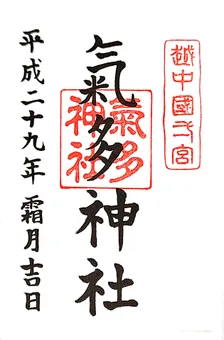 越中國弌宮
氣多神社
氣多
神社
平成二十九年 霜月吉日